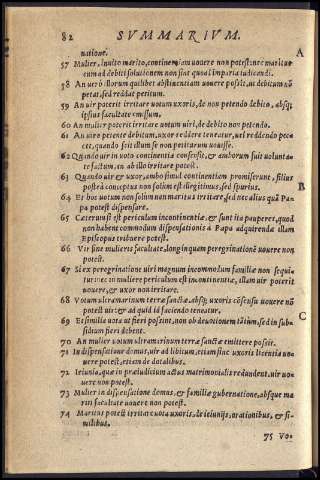 82 SVMMARIVM.
natione.
57 Mulier, inuito marito, continentiam uouere non potest: nec maritus
cum ad debiti solutionem non sint quo ad imparia iudicandi.
58 An uerò illorum quilibet abstinentiam uouere possit, ut debitum nõ
petat, sed reddat petitum.
59 An uir poterit irritare uotum uxoris, de non petendo debito, absq;
ipsius facultate emissum.
60 An mulier poterit irritare uotum uiri, de debito non petendo.
61 An uire petente debitum, uxor reddere teneatur, uel reddendo pec-
cet, quando scit illum se non petiturum nouisse.
62 Quando uir in voto continentia consensit, & amborum fuit volunta-
te factum, an ab illo irritare potest.
63 Quando uir & uxor, ambo simul continentiam promiserunt, filius
posteà conceptus non solum est illegitimus, sed spurius.
64 Et hoc uotum non solum non maritus irritare, sed nec alius quã Pa-
pa potest dispensare.
65 Cæterum si est periculum incontinentiæ, & sunt ita pauperes, quod
non habent commodum dispensationis à Papa adquirendæ illam
Episcopus tribuere potest.
66 Vir sine mulieris facultate, longinquam peregrinationẽ uouere non
potest.
67 Si ex peregrinatione uiri magnum incommodum familiæ non sequi-
tur: nec in muliere periculum est incontinentiæ, illam uir poterit
uouere, & uxor non irritare.
68 Votum ultramarinum terræ sanctæ, absq; uxoris cõsensu uouere nõ
potest uir: & uir ad quid id faciendo teneatur.
69 Et similia uota ut fieri possint, non ob deuotionem tãtum, sed in sub-
sidium fieri debent.
70 An mulier votum ultramarinum terræ sanctæ emittere possit.
71 In dispensatione domus, uir ad libitum, etiam sine uxoris licentia uo-
uere potest, etiam de dotalibus.
72 Ieiunia, quæ in præiudicium actus matrimonialis redundent, uir uo-
uere non potest.
73 Mulier in dispensatione domus, & familiæ gubernatione, absque ma-
riti facultate uouere non potest.
74 Maritus potest irritare uota uxoris, de ieiunijs, orationibus, & si-
milibus.
75 Vo-
A
B
C